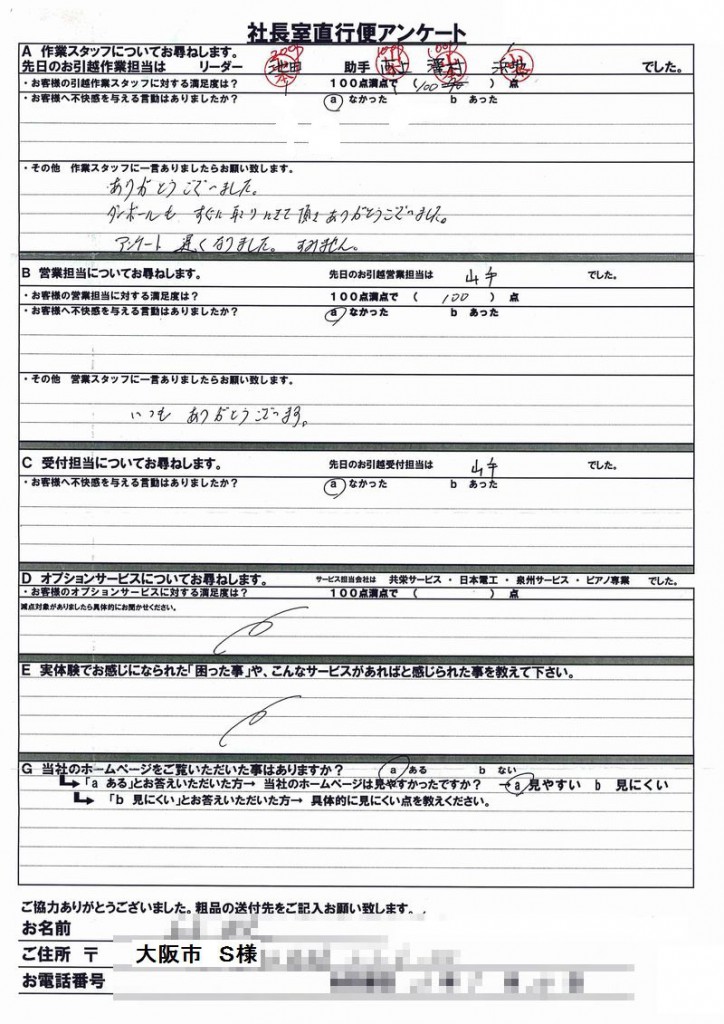 社長室直行便アンケート
A 作業スタッフについてお尋ねします。
先日のお引越作業担当は リーダー 池田 助手 澤村 でした。
・お客様の引越作業スタッフに対する満足度は? 100点満点で ( 100 ) 点
・お客様へ不快感を与える言動はありましたか? a なかった b あった
・その他 作業スタッフに一言ありましたらお願い致します。
ありがとうございました。
ダンボールも すぐに取りにきて頂き ありがとうございました。
アンケート 遅くなりました。すみません。
B 営業担当についてお尋ねします。 先日のお引越営業担当は でした。
・お客様の営業担当に対する満足度は? 100点満点で ( 100 ) 点
・お客様へ不快感を与える言動はありましたか? a なかった b あった
・その他 営業スタッフに一言ありましたらお願い致します。
いつも ありがとうございます。
C 受付担当についてお尋ねします。 先日のお引越受付担当は でした。
・お客様へ不快感を与える言動はありましたか? a なかった b あった
D オプションサービスについてお尋ねします。 サービス担当会社は 共栄サービス ・ 日本電工 ・ 泉州サービス ・ ピアノ専業 でした。
・お客様のオプションサービスに対する満足度は? 100点満点で ( ) 点
減点対象がありましたら具体的にお聞かせください。
E 実体験でお感じになられた「困った事」や、こんなサービスがあればと感じられた事を教えて下さい。
G 当社のホームページをご覧いただいた事はありますか? a ある b ない
「a ある」とお答えいただいた方→ 当社のホームページは見やすかったですか? →a 見やすい b 見にくい
「b 見にくい」とお答えいただいた方→ 具体的に見にくい点を教えください。
ご協力ありがとうございました。粗品の送付先をご記入お願い致します。
お名前
ご住所 〒 大阪市 S様
お電話番号